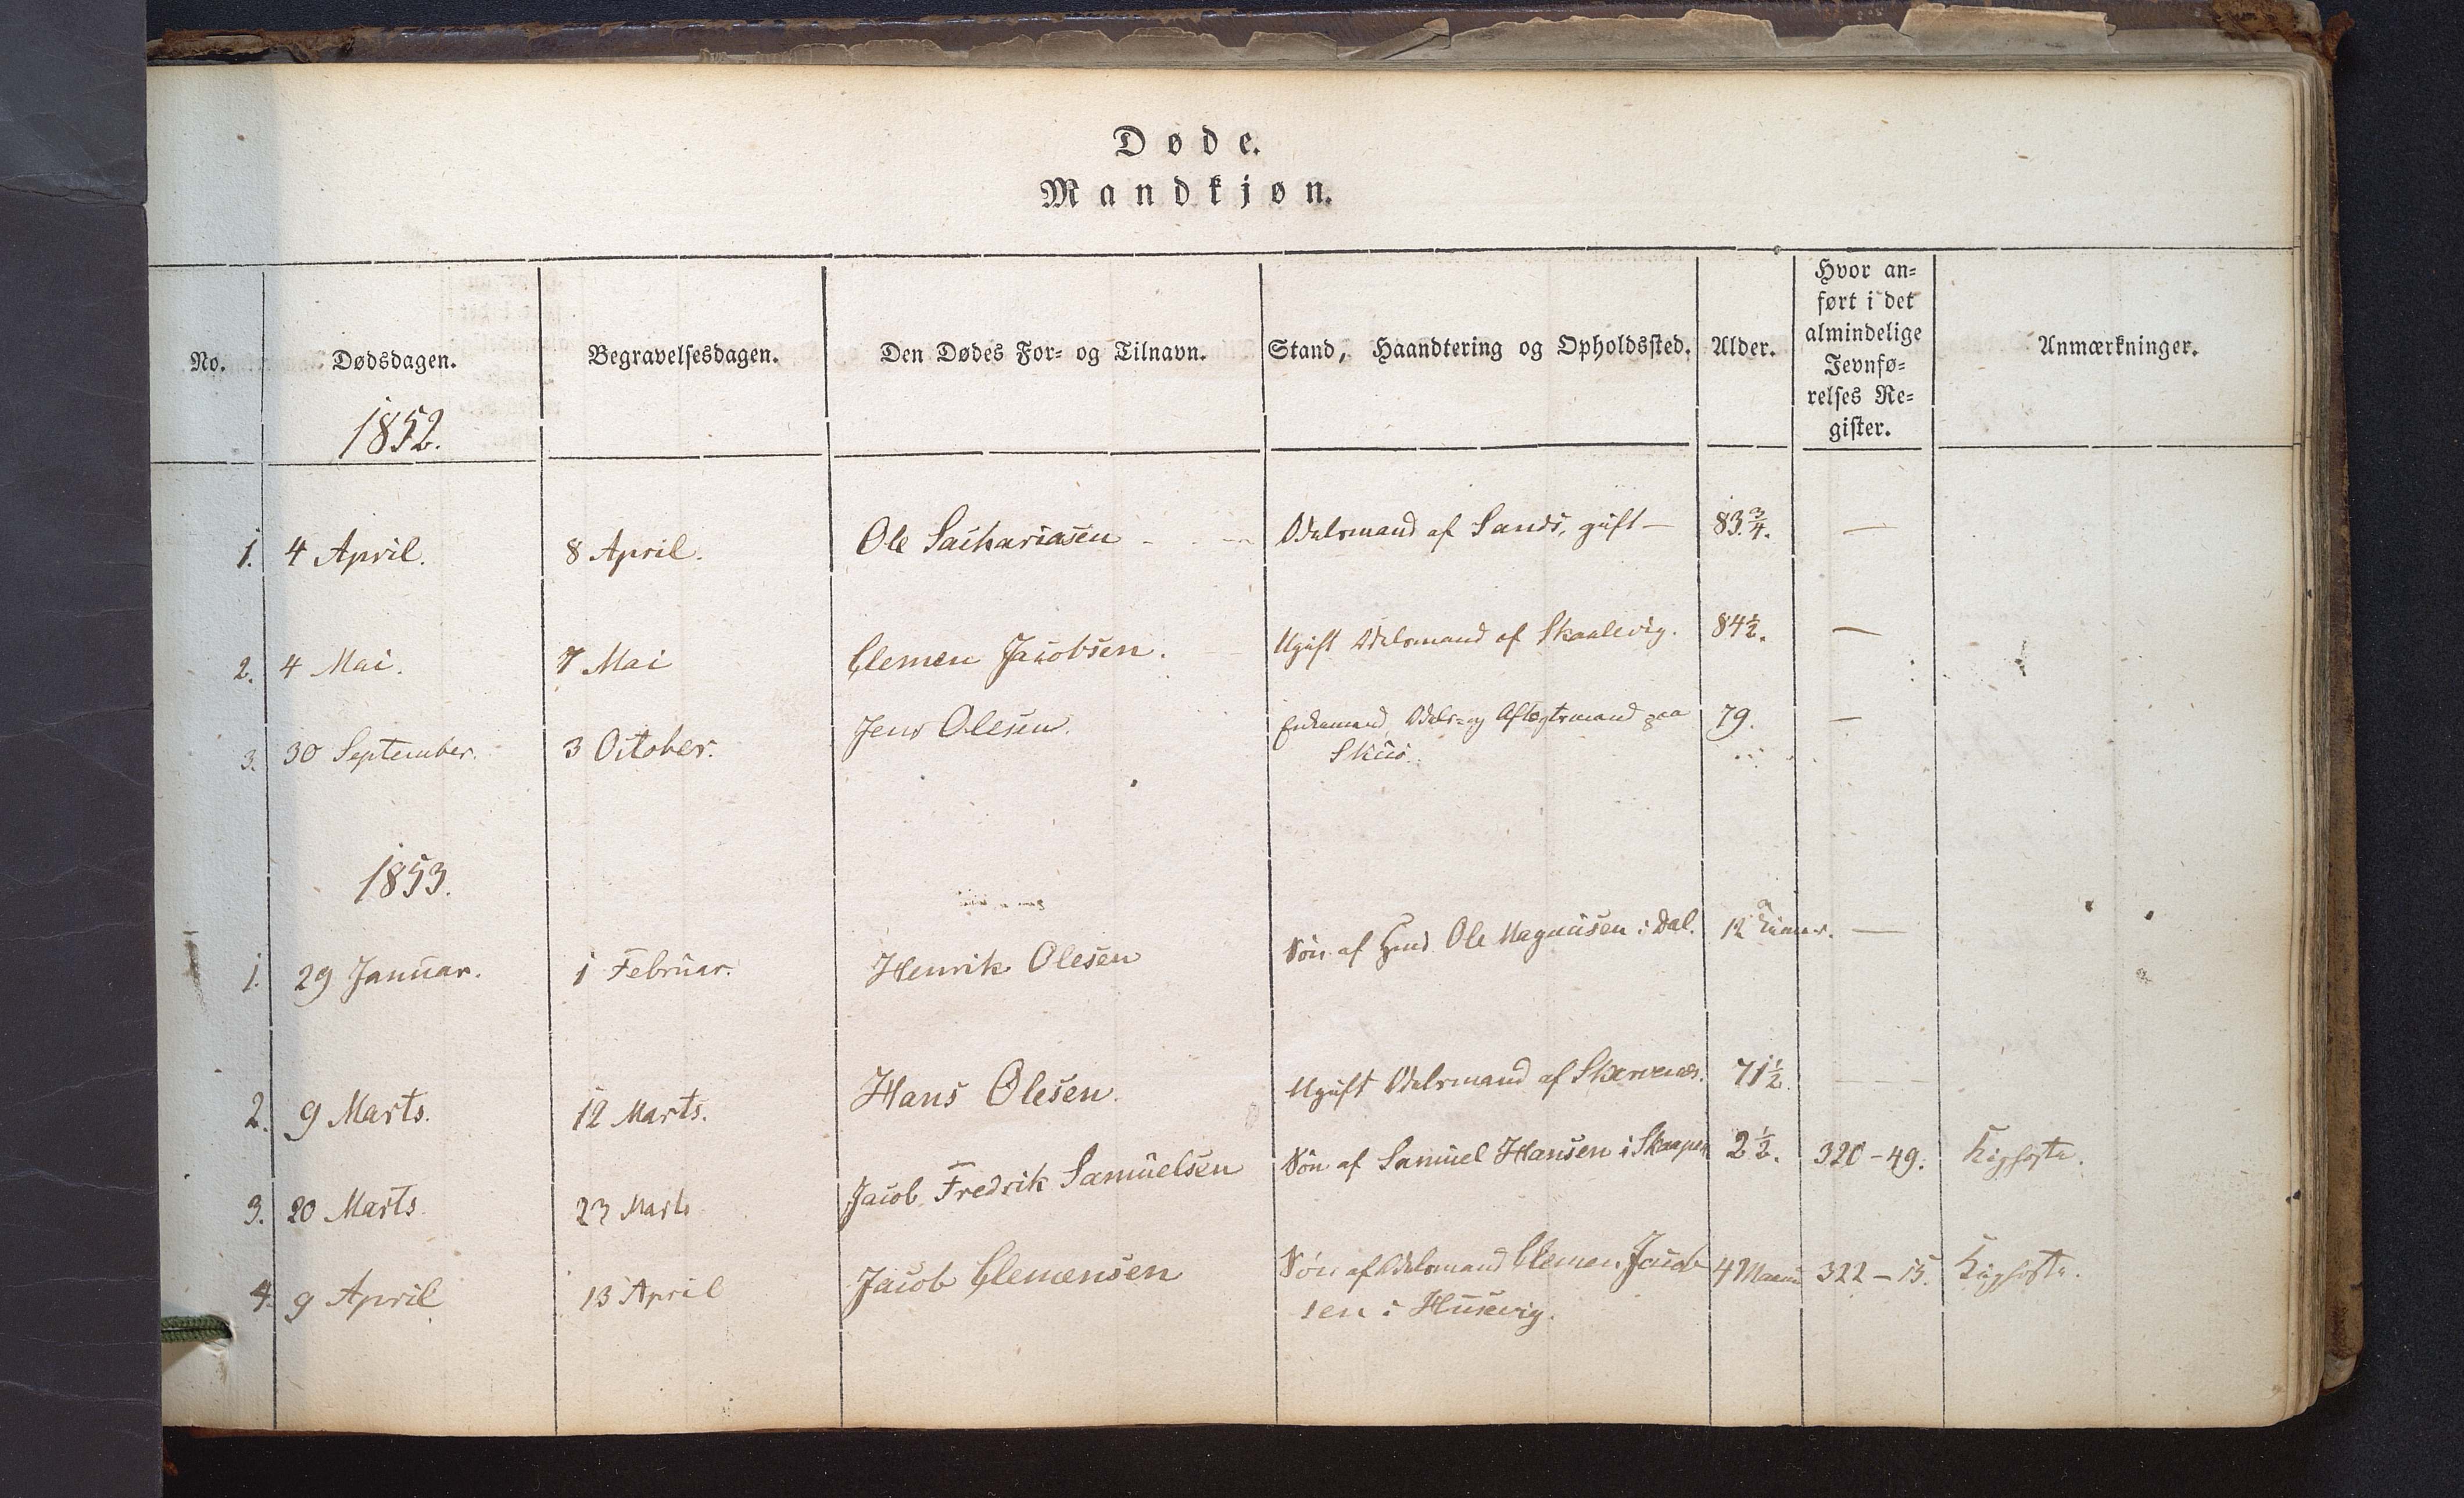 Døde.
Mandkjøn.
No. Dødsdagen. Begravelsesdagen. Den Dødes For- og Tilnavn. Stand, Haandtering og Opholdssted. Alder. Hvor an-
ført i det
almindelige
Jevnfø-
relses Re-
gister. Anmærkninger.
1852.
1. 4 April. 8 April. Ole Sachariasen Odelsmand af Sands, gift — 83 3/4. —
2. 4 Mai. 7 Mai Clemen Jacobsen. Ugift Odelsmand af Skaalevig. 84 1/2. —
3. 30 September. 3 October. Jens Olesen. Enkemand, Odels- og Aftægtsmand paa 79. —
Skuø.
1853.
1. 29 Januar. 1 Februar. Henrik Olesen Søn af Ole Magnusen i Dal. 12 Timer. —
2. 9 Marts. 12 Marts. Hans Olesen. Ugift Odelsmand af Skarvenæs. 71 1/2. —
3. 20 Marts 23 Marts Jacob Fredrik Samuelsen Søn af Samuel Hansen i Skaapen 2 1/2. 320 - 49. Kighoste.
4. 9 April 13 April Jacob Clemensen Søn af Odelsmand Clemen Jacob 4 Maan 322 - 15. Kighoste.
sen i Husevig.